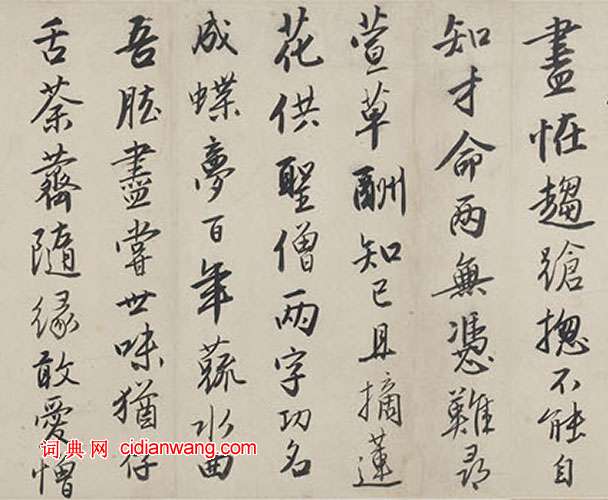 盡怪趨蹌揔不能自
知才命兩無憑難尋
萱草酬知己且摘蓮
花供聖僧兩字功名
成蝶夢百年蔬水曲
吾肱盡嘗世味猶存
舌荼薺隨緣敢愛憎
词典网 cidianwang.com